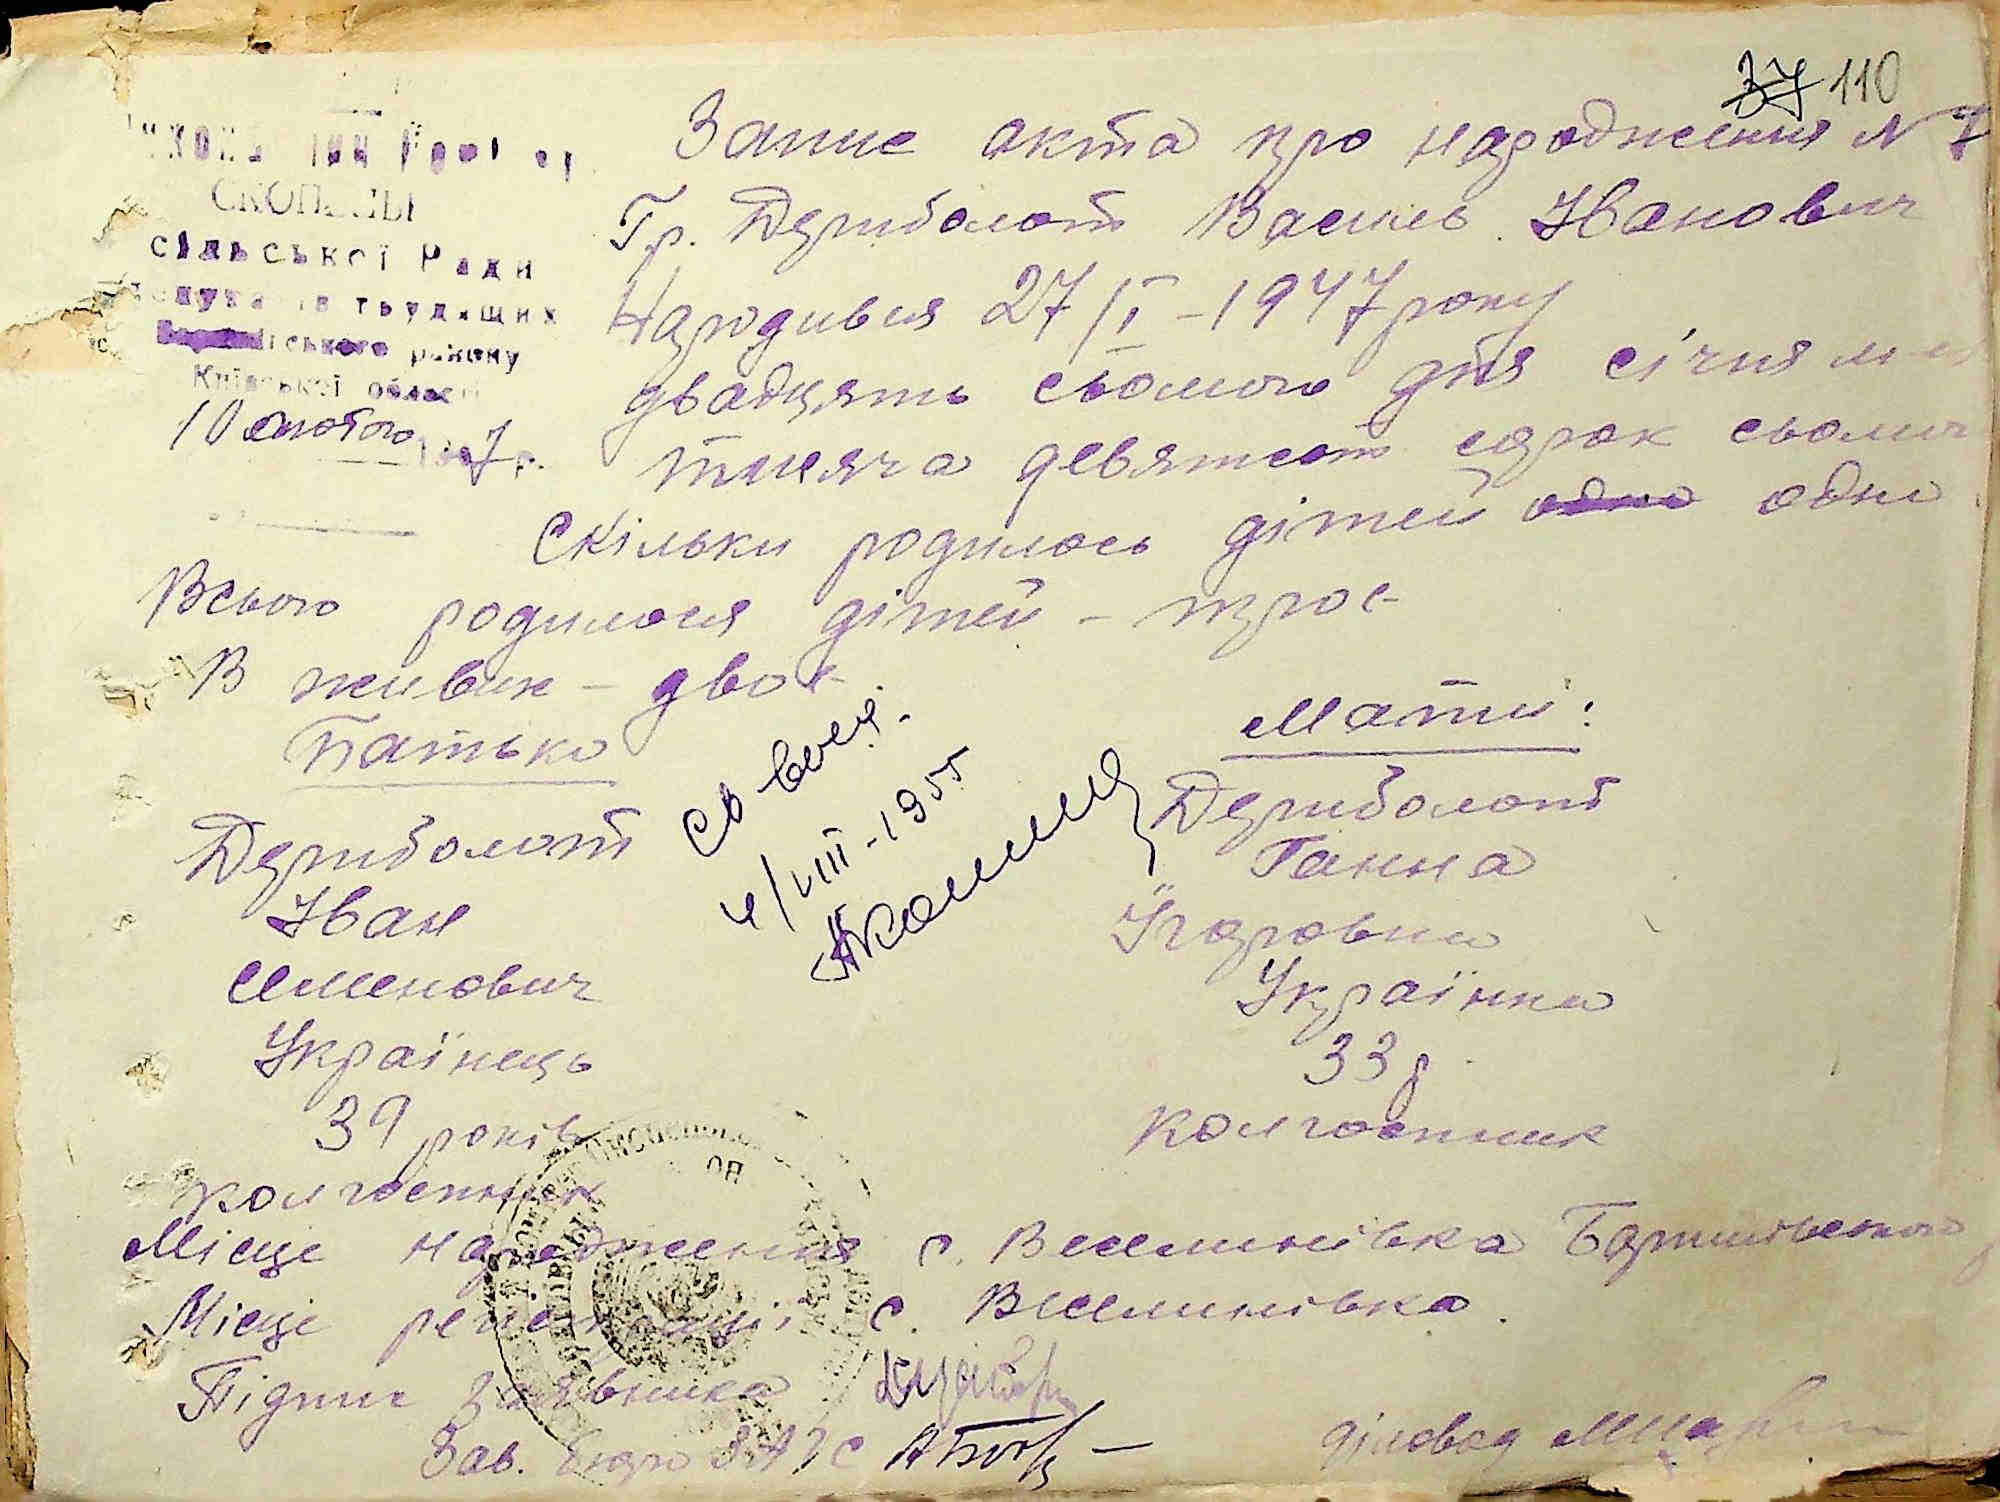 37 110
Запис акта про народження N 7
СКОПЕЦЬКІ
сільської Ради
трудящих
району
Київської області
10 лютого 1947 р.
Гр. Дериболот Василь Іванович
Народився 27/I - 1947 року
двадцять сьомого дня січня м-ця
тисяча девятсот сорок сьомого
Скільки родилось дітей одно одно
Всього родилося дітей - троє
В живих - двоє
Батько
Дериболот
Іван
Семенович
Українець
39 років
колгоспник
4/VIII - 1955
Мати:
Дериболот
Ганна
Українка
33 р.
колгоспник
Місце народження с. Веселинівка Баришівського
Місце реєстрації с. Веселинівка.
Підпис заявника
Зав. бюро ЗАГС
діловод